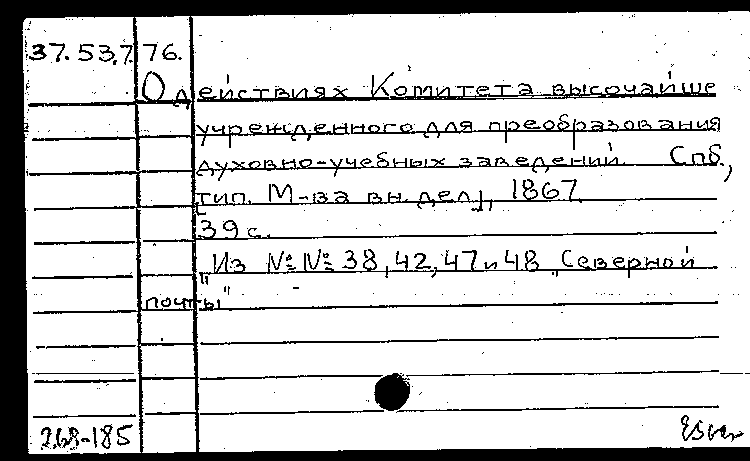 37.53.7.76.
О действиях Комитета высочайше
учрежденного для преобразования
духовно-учебных заведений. Спб.,
[тип. М-ва вн. дел], 1867.
39 с.
"Из №№ 38, 42, 47 и 48 „Северной
почты"
268-185